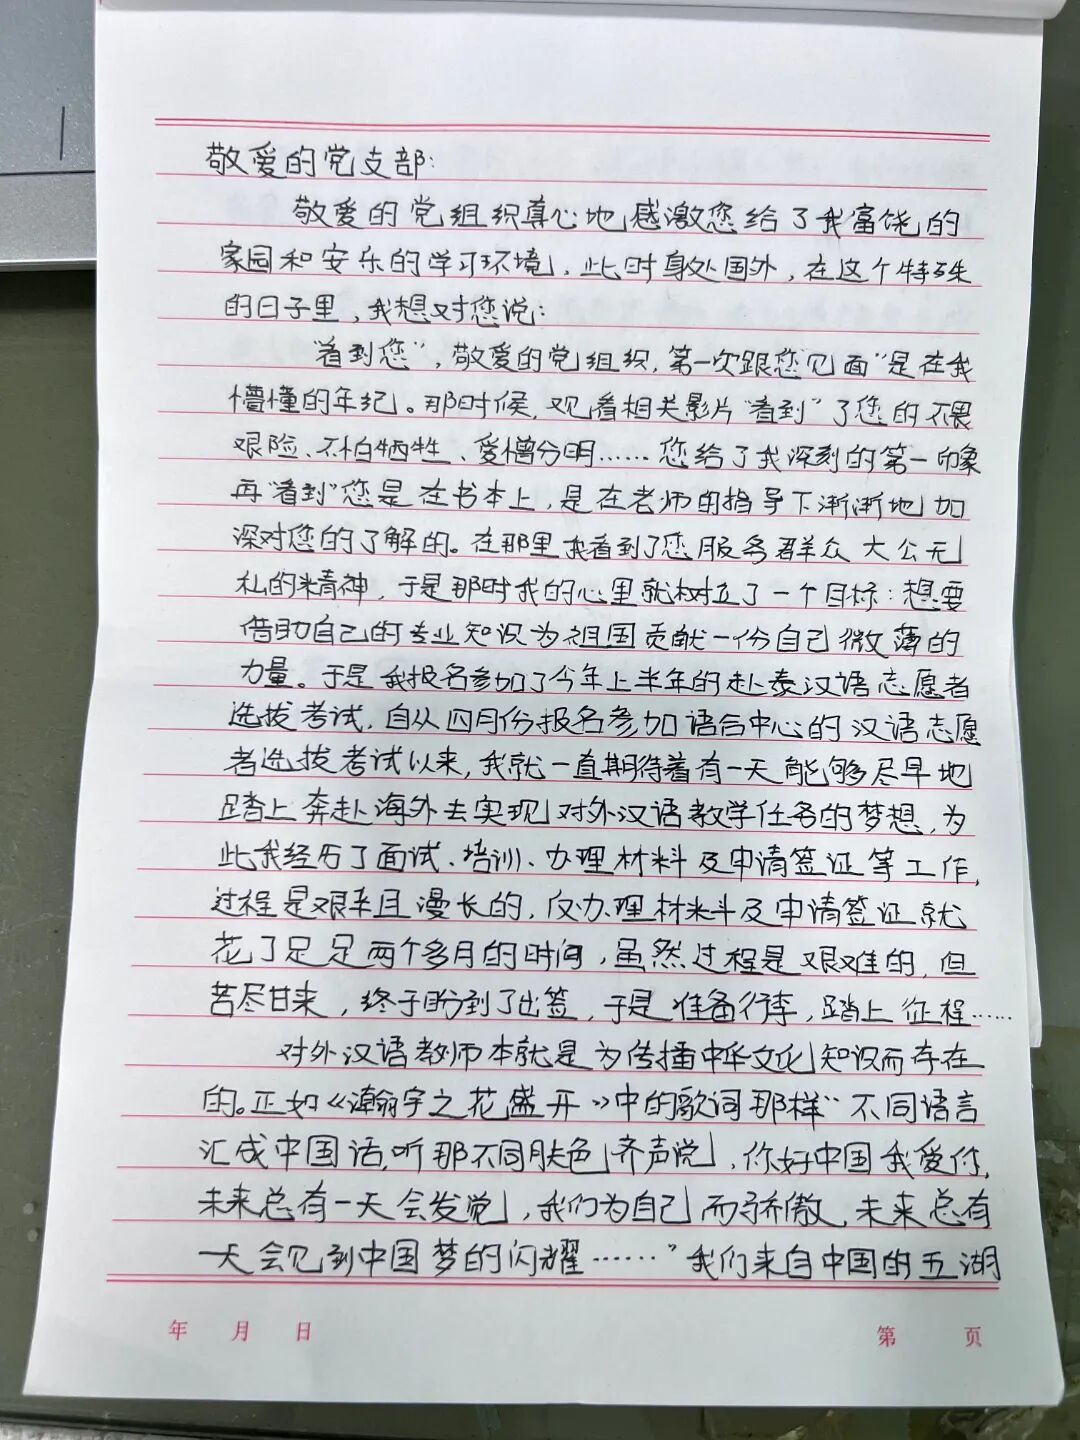 敬爱的党支部：
敬爱的党组织真心地感激您给了我富饶的
家园和安乐的学习环境，此时身处国外，在这个特殊
的日子里，我想对您说：
“看到您”，敬爱的党组织，第一次跟您“见面”是在我
懵懂的年纪。那时候，观看相关影片“看到”了您的不畏
艰险、不怕牺牲、爱憎分明……您给了我深刻的第一印象
再“看到”您是在书本上，是在老师的指导下渐渐地加
深对您的了解的。在那里我看到了您服务群众大公无
私的精神，于是那时我的心里就树立了一个目标：想要
借助自己的专业知识为祖国贡献一份自己微薄的
力量。于是我报名参加了今年上半年的赴泰汉语志愿者
选拔考试，自从四月份报名参加语合中心的汉语志愿
者选拔考试以来，我就一直期待着有一天能够尽早地
踏上奔赴海外去实现对外汉语教学任务的梦想，为
此我经历了面试、培训、办理材料及申请签证等工作，
过程是艰辛且漫长的，仅办理材料及申请签证就
花了足足两个多月的时间，虽然过程是艰难的，但
苦尽甘来，终于盼到了出签，于是准备行李，踏上征程……
对外汉语教师本就是为传播中华文化知识而存在
的。正如《瀚宇之花盛开》中的歌词那样“不同语言
汇成中国话，听那不同肤色齐声说，你好中国我爱你，
未来总有一天会发觉，我们为自己而骄傲，未来总有
一天会见到中国梦的闪耀……”我们来自中国的五湖
年 月 日
第 页